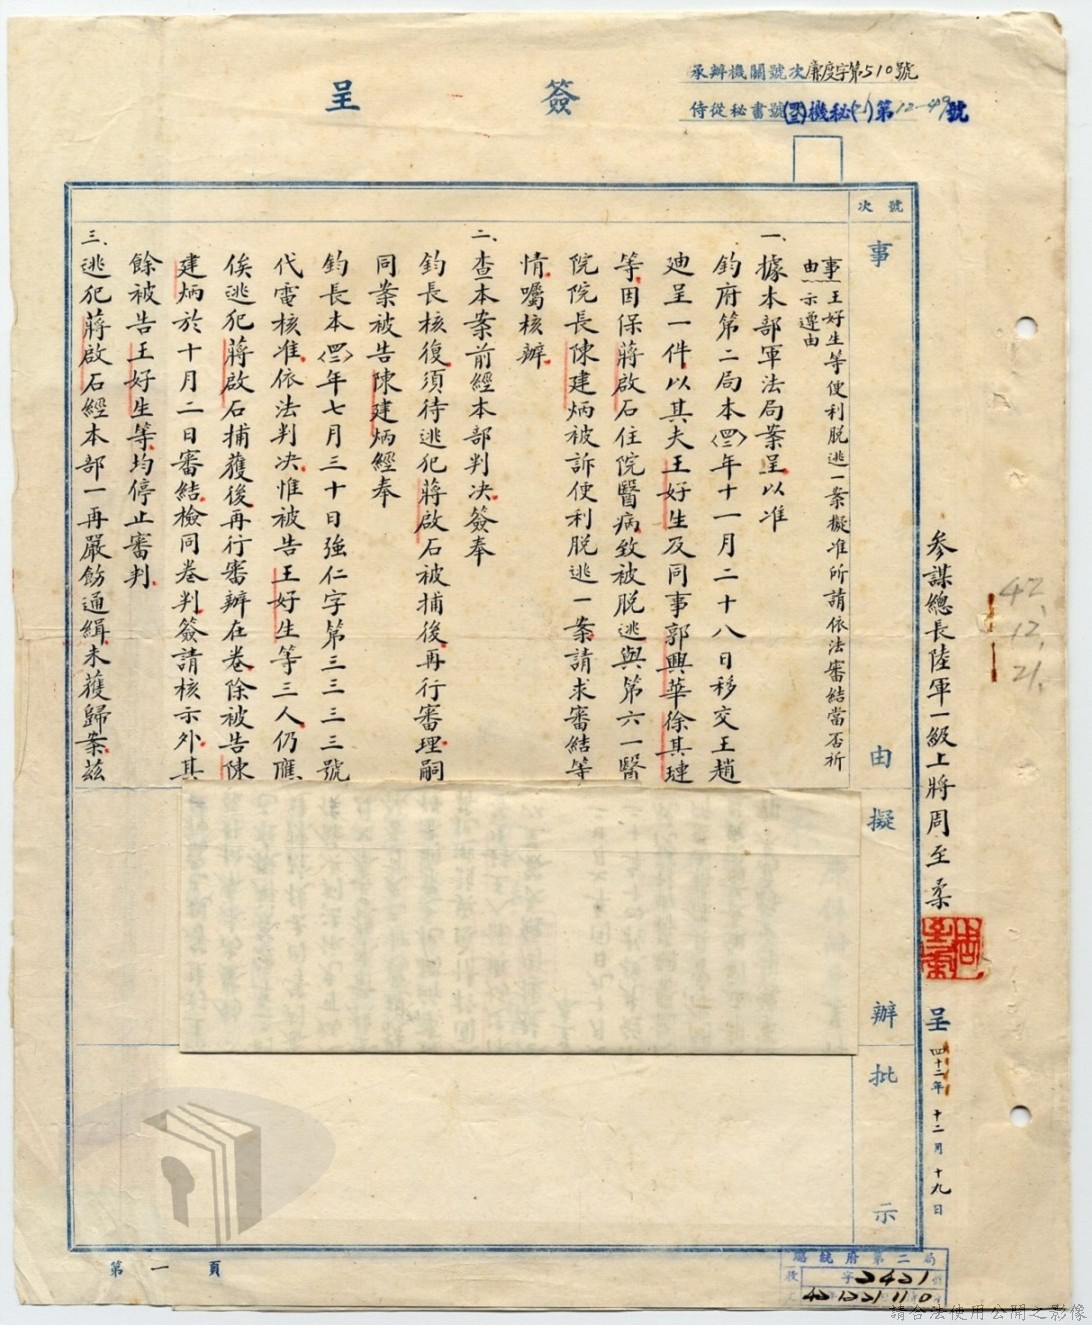 簽呈
承辦機關號次廉度字第510號
侍從秘書號次(四二)機秘(乙)第12-49號
號次
事由
擬辦
批示
事由：王好生等便利脫逃一案擬准所請依法審結當否祈
示遵由
一、據本部軍法局案呈以准
鈞府第二局本<四二>年十一月二十八日移交王趙
廸呈一件以其夫王好生及同事郭興華徐其璉
等因保蔣啟石住院醫病致被脫逃與第六一醫
院院長陳建炳被訴便利脫逃一案請求審結等
情囑核辦
二、查本案前經本部判决簽奉
鈞長核復須待逃犯蔣啟石被捕後再行審理嗣
同案被告陳建炳經奉
鈞長本<四二>年七月三十日強仁字第三三三三號
代電核准依法判决惟被告王好生等三人仍應
俟逃犯蔣啟石捕獲後再行審辦在卷除被告陳
建炳於十月二日審結檢同卷判簽請核示外其
餘被告王好生等均停止審判
三、逃犯蔣啟石經本部一再嚴飭通緝未獲歸案茲
參謀總長陸軍一級上將周至柔
呈 四十二年十二月十九日
42.12.21.
第一頁
總統府第二局
收字2421號
請合法使用公開之影像